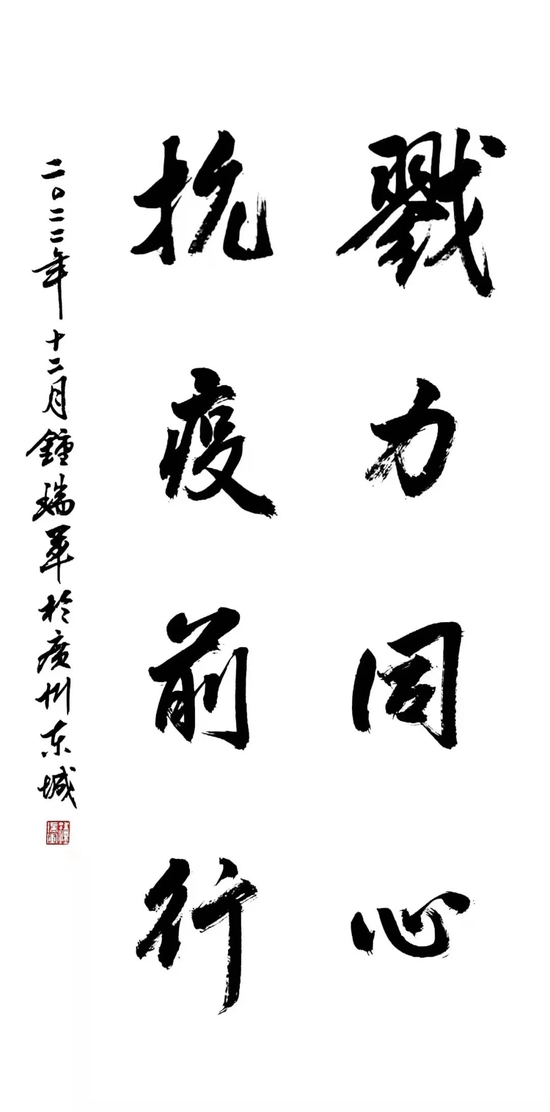 戮力同心
抗疫前行
二〇二二年十二月鍾瑞軍於廣州东城